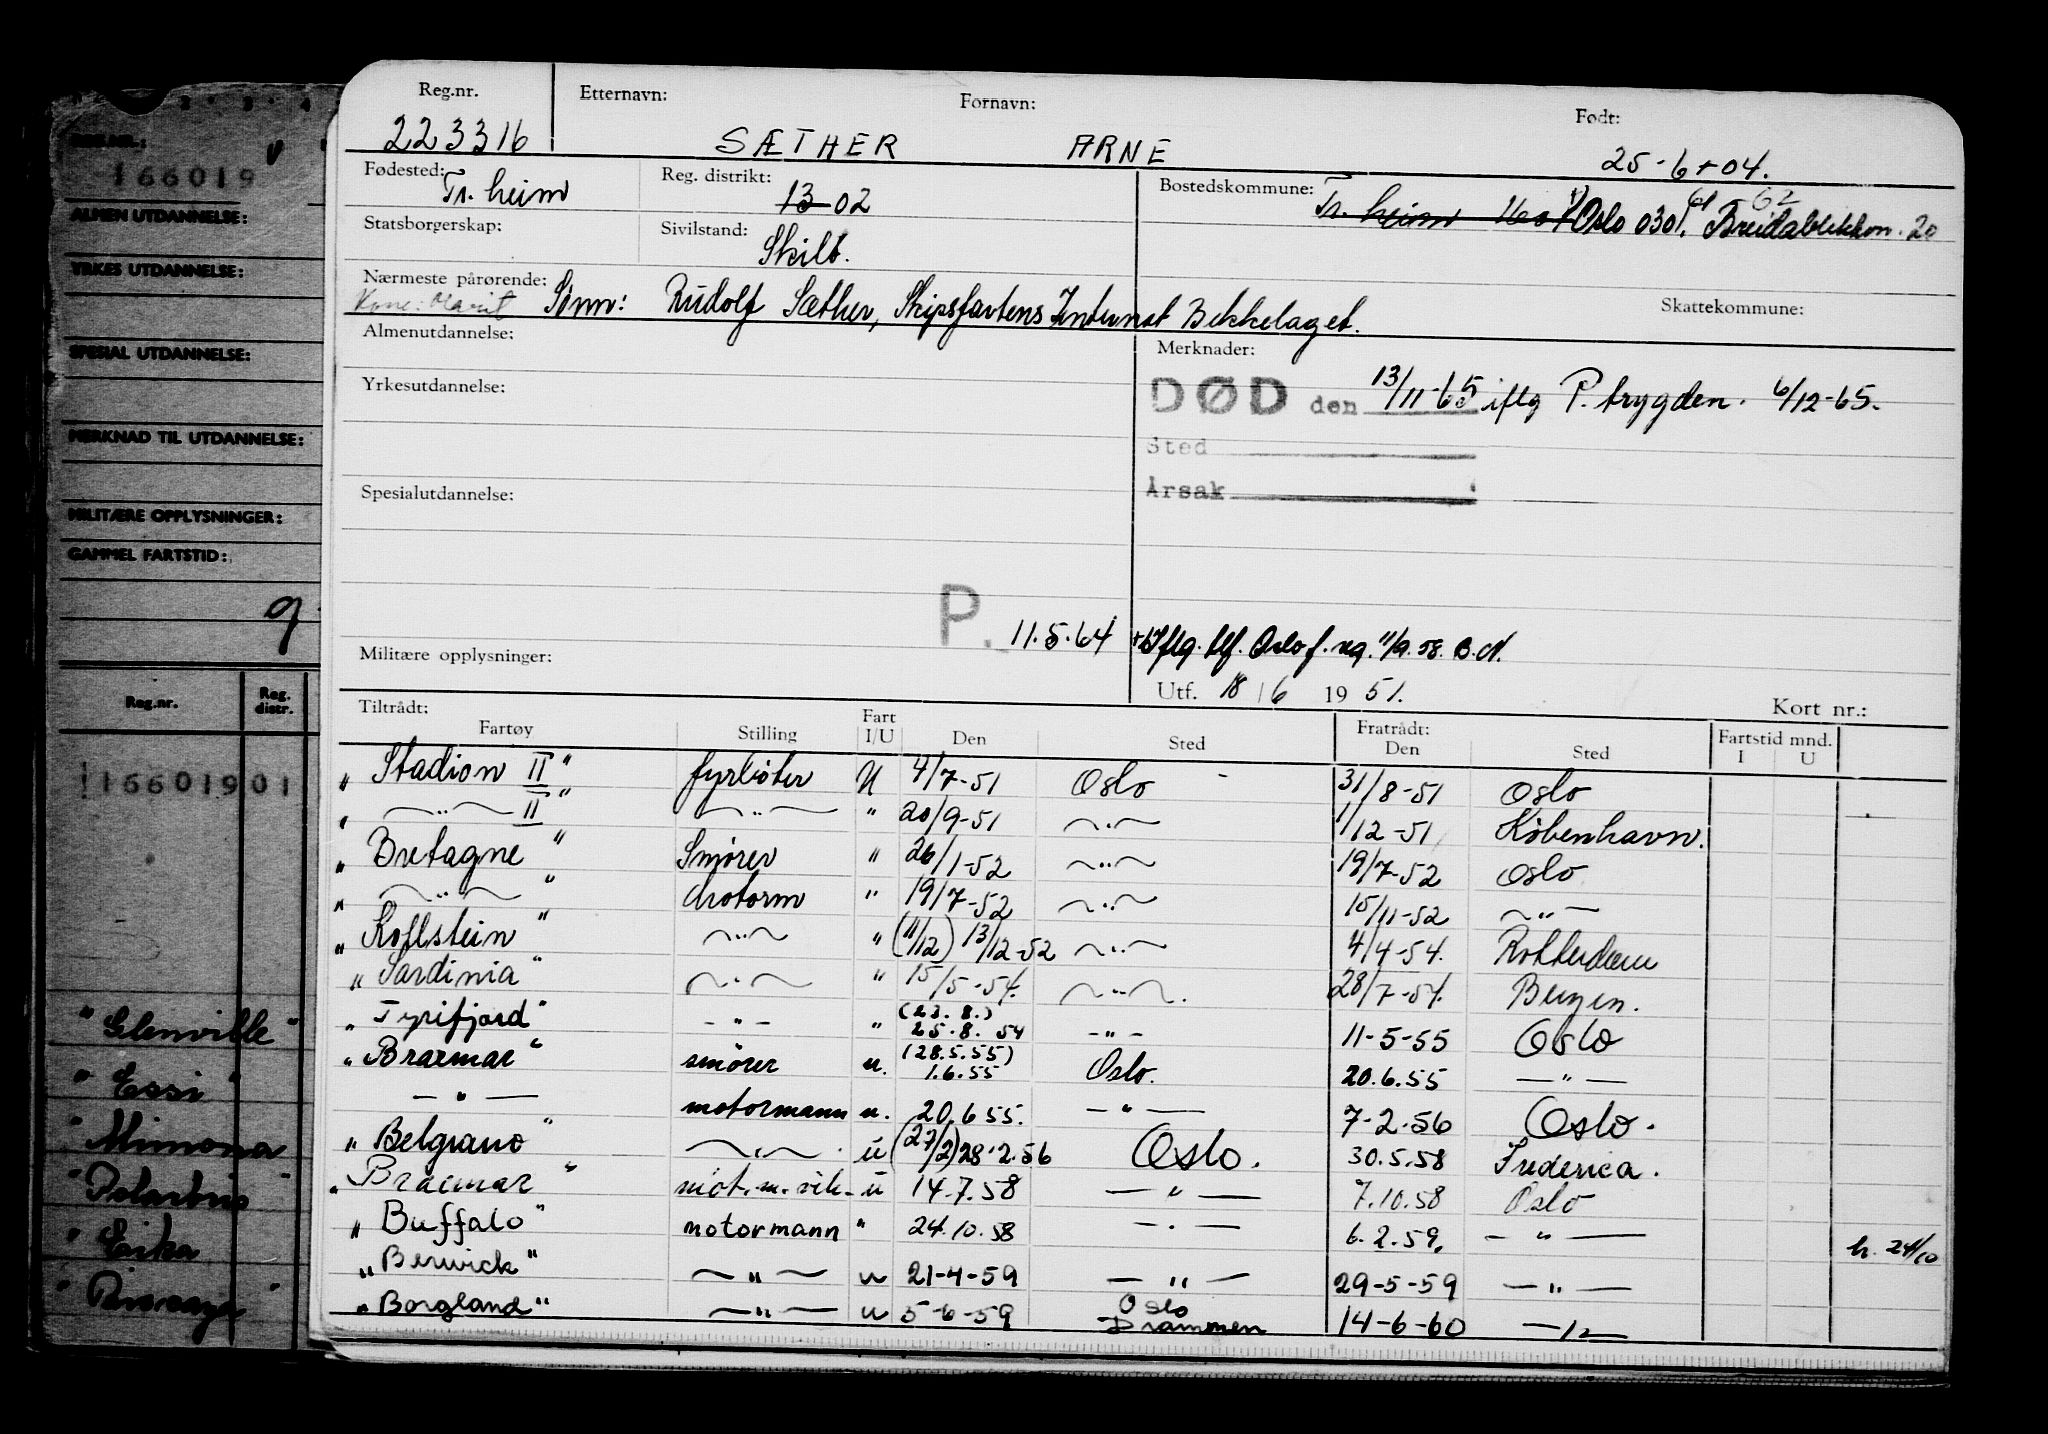 Reg.nr. Etternavn: Fornavn: Født:
223316 SÆTHER ARNE 25-6-04.
Fødested: Tr. heim Reg. distrikt: 13 02 Bostedskommune: Tr. heim 1601 Oslo 0301. 62
Statsborgerskap: Sivilstand: Skilt. 20
Nærmeste pårørende: Sønn: Rudolf Sæther, Skipsfartens Internat Bekkelaget. Skattekommune:
Kone: Marit
Almenutdannelse: Merknader:
DØD den 13/11-65 iflg P. trygden. 6/12-65.
Yrkesutdannelse:
Sted
Årsak
Spesialutdannelse:
P. 11.5.64 Iflg. tlf. Oslo f. reg. 11/9.58. B.N.
Militære opplysninger: Utf. 18/6 1951. Kort nr.:
Tiltrådt: Fartøy Stilling Fart I/U Den Sted Fratrådt: Den Sted Fartstid mnd. I U
" Stadion II " fyrbøter U 4/7-51 Oslo - 31/8-51 Oslo
" —"— II " —"— " 20/9-51 —"— 1/12-51 København.
" Bretagne " Smører " 26/1-52 —"— 19/7-52 Oslo
" —"— " Motorm " 19/7-52 —"— 15/11-52 —"—
" Rollstein " —"— " (11/12) 13/12-52 —"— 4/4-54. Rotterdam
" Sardinia " —"— " 15/5-54. —"—. 28/7-54. Bergen.
" Tyrifjord " —"— " (23.8.) 25.8.54 —"— 11-5-55 Oslo
" Braemar " smører u. (28.5.55) 1.6.55 Oslo. 20.6.55 —"—
—"— motormann u. 20.6 55. —"— 7-2-56 Oslo.
" Belgrano " —"— u (27/2) 28.2.56 Oslo. 30.5.58 Fredericia.
" Braemar " mot.m. vik. u 14.7.58 —"— 7.10.58 Oslo
" Buffalo " motormann " 24.10.58 —"— 6.2.59. —"— h. 24/10
" Berwick " —"— u 21-4-59 —"— 29-5-59 —"—
" Borgland " —"— u 5-6-59 Oslo Drammen 14-6-60 —"—
REG.NR.:
166019
ALMEN UTDANNELSE:
YRKES UTDANNELSE:
SPESIAL UTDANNELSE:
MERKNAD TIL UTDANNELSE:
MILITÆRE OPPLYSNINGER:
GAMMEL FARTSTID:
Reg.nr. Reg. distr.
116601901
" Glenville "
" Essi "
" Mimona
" Polarbris "
" Erika